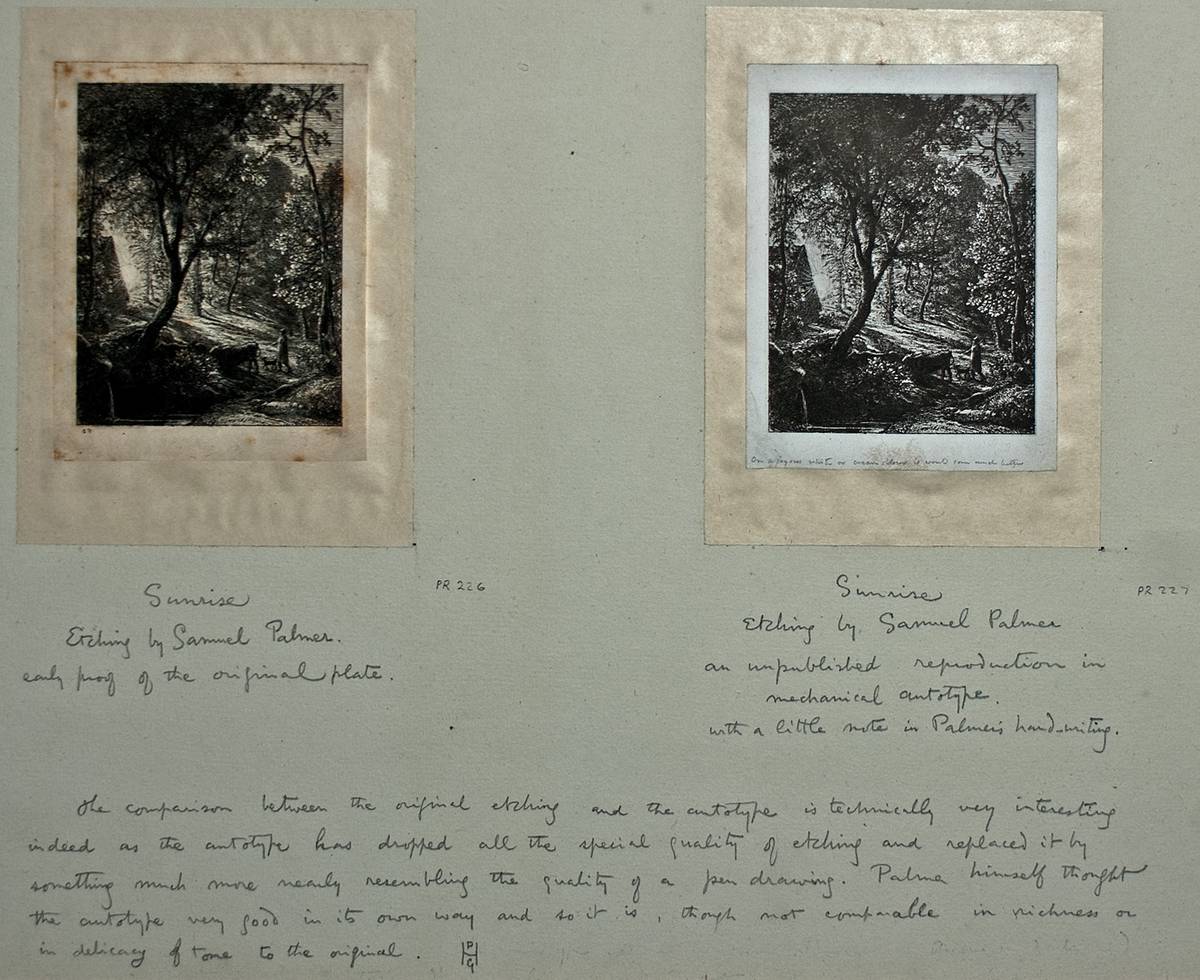 On a joyous white or cream it would come much better
PR 226
Sunrise
Etching by Samuel Palmer.
early proof of the original plate.
PR 227
Sunrise
Etching by Samuel Palmer
an unpublished reproduction in
mechanical autotype.
with a little note in Palmer's hand-writing.
The comparison between the original etching and the autotype is technically very interesting
indeed as the autotype has dropped all the special quality of etching and replaced it by
something much more nearly resembling the quality of a pen drawing. Palmer himself thought
the autotype very good in its own way and so it is, though not comparable in richness or
in delicacy of tone to the original. PHG